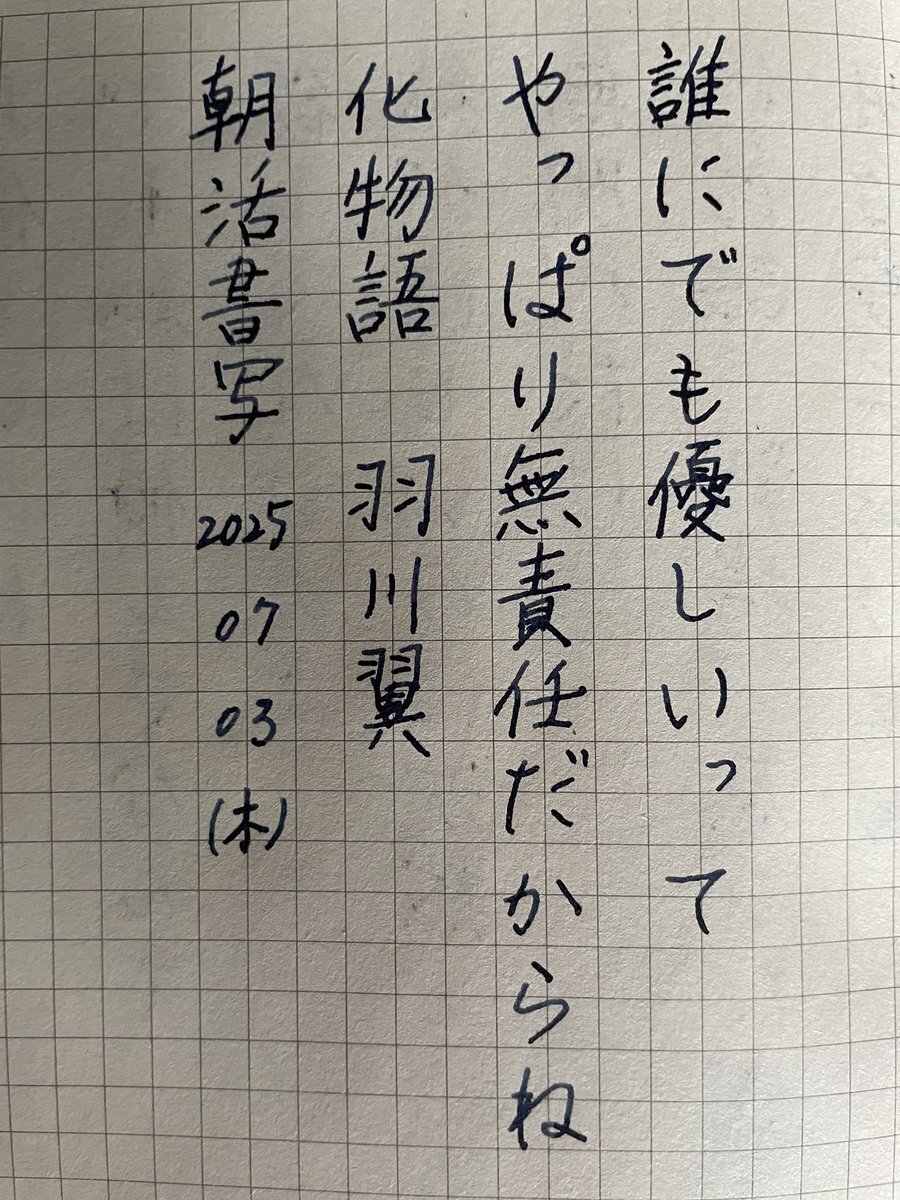 誰にでも優しいって
やっぱり無責任だからね
化物語　羽川翼
朝活書写　2025　07　03　(木)